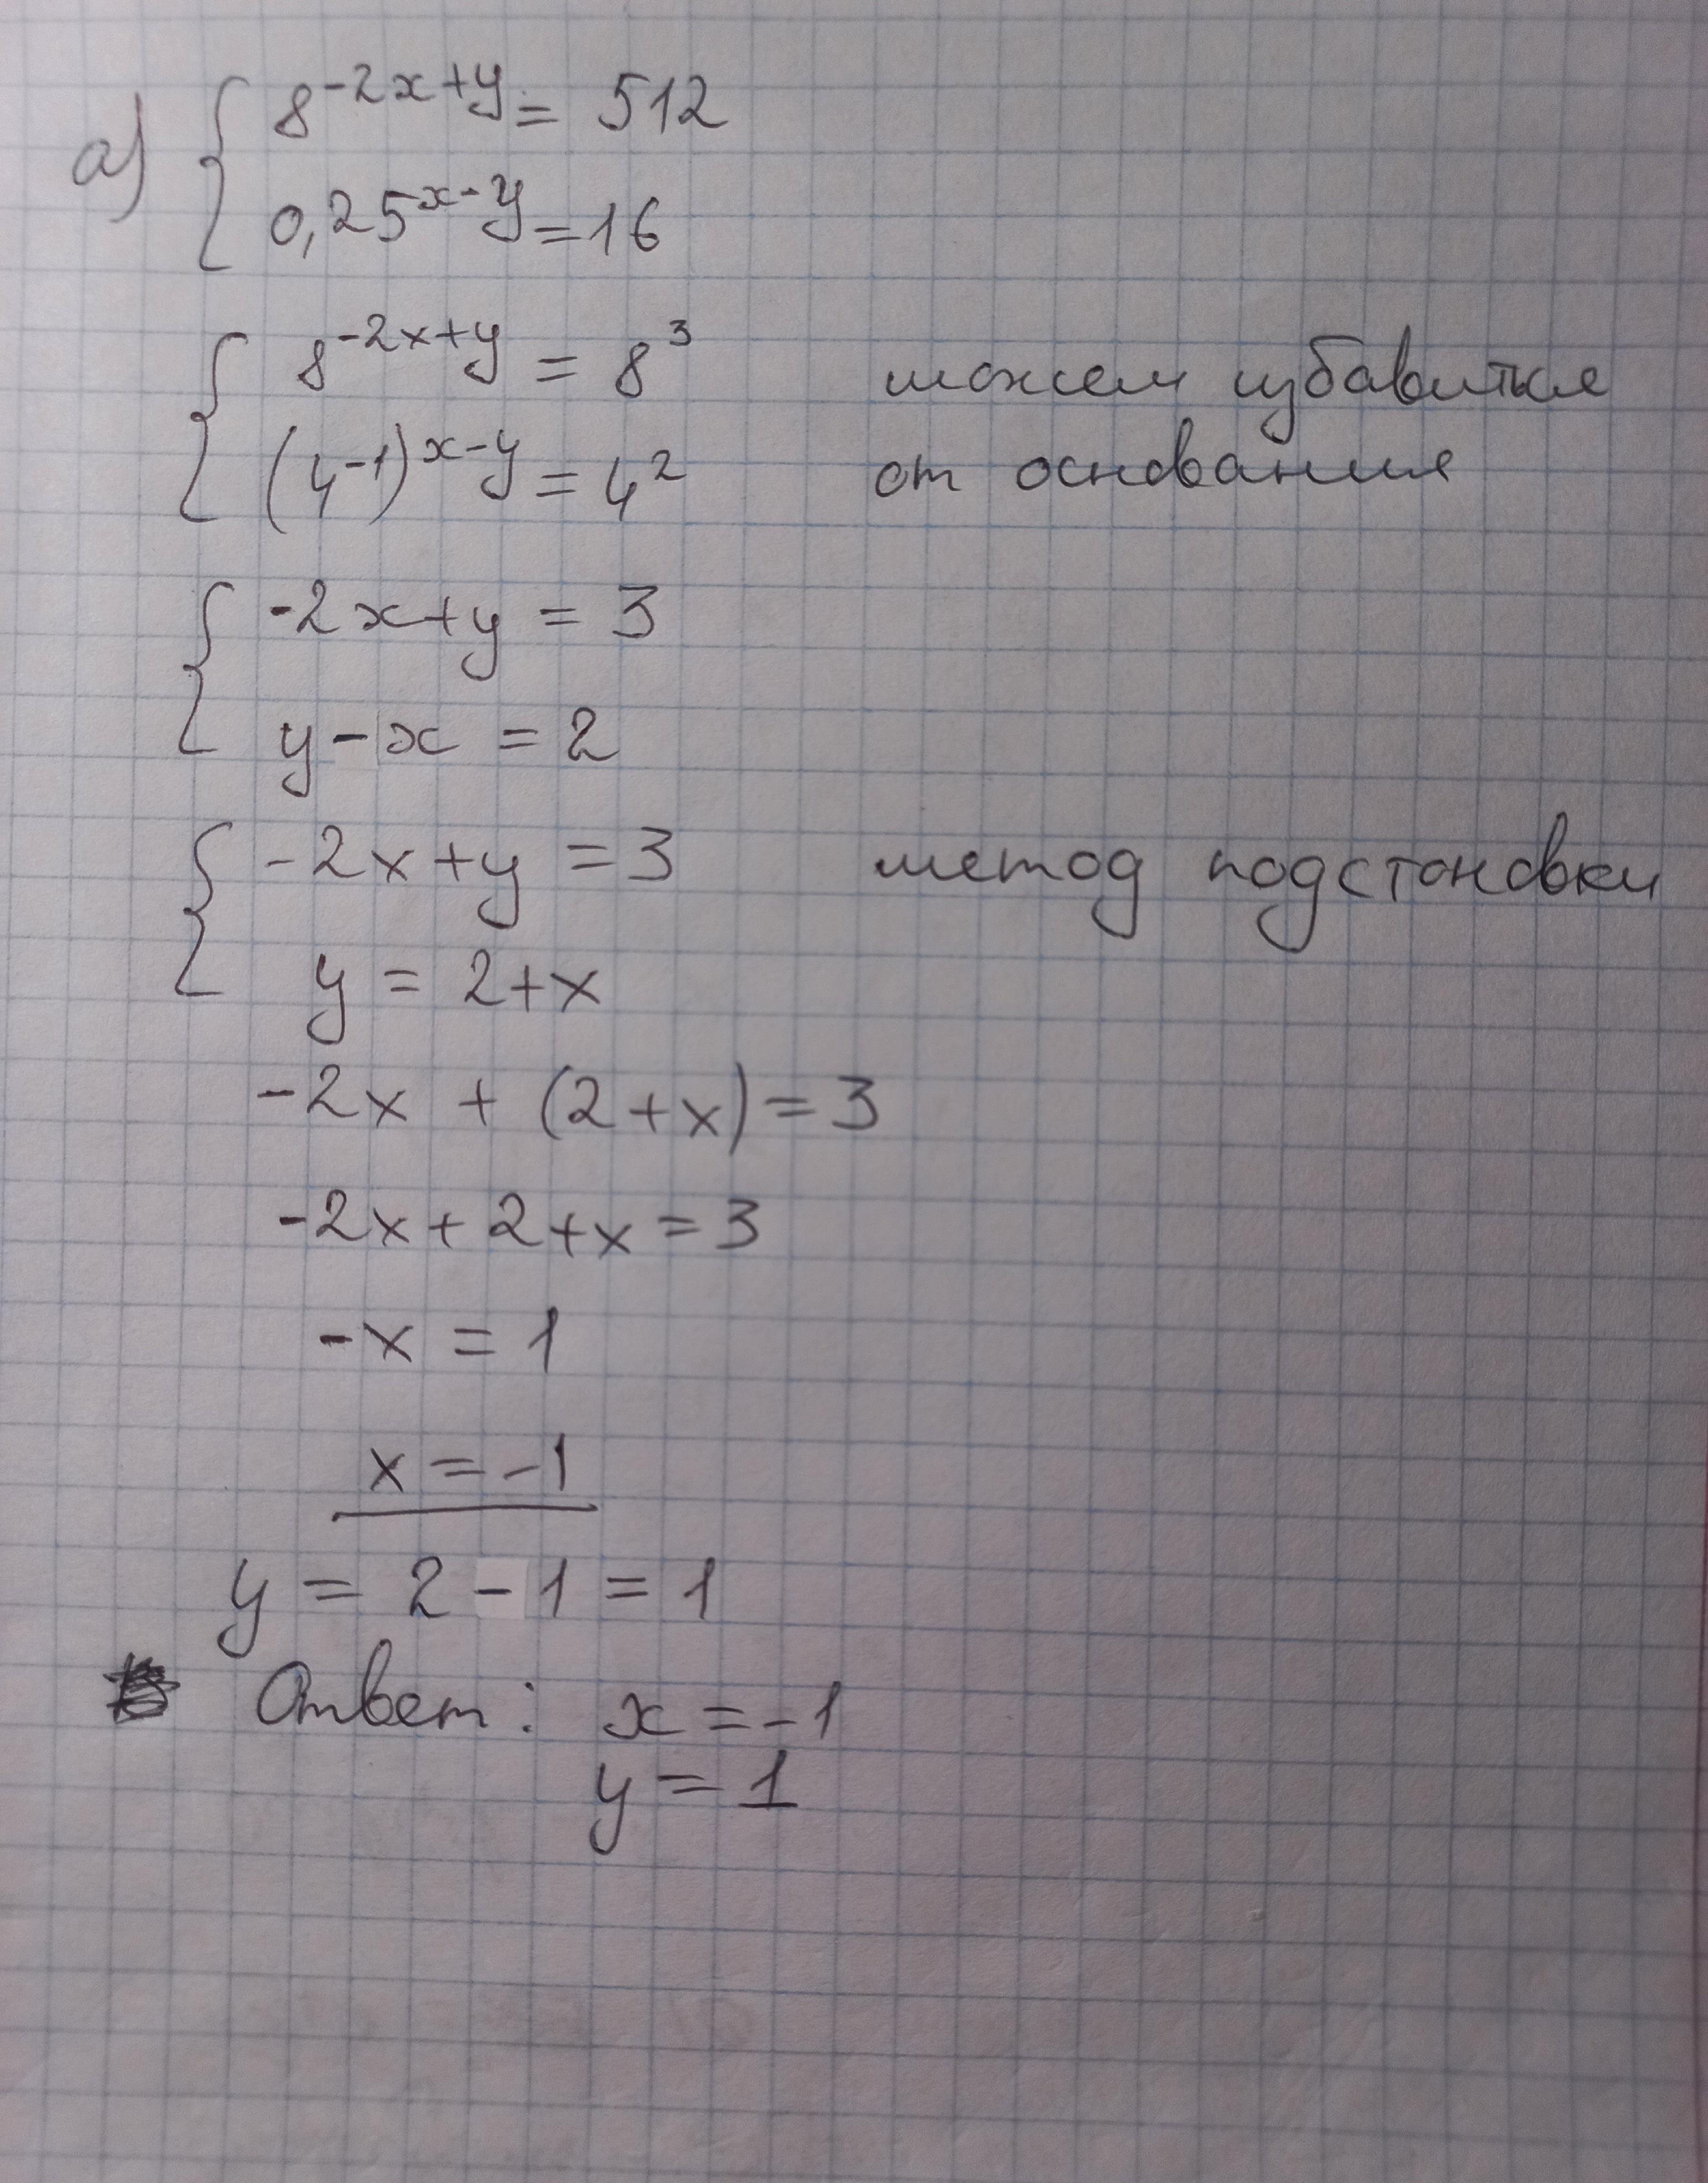 а) { 8^{-2x+y} = 512
0,25^{x-y} = 16
{ 8^{-2x+y} = 8^3 можем избавиться
(4^{-1})^{x-y} = 4^2 от основания
{ -2x+y = 3
y-x = 2
{ -2x+y = 3 метод подстоновки
y = 2+x
-2x + (2+x) = 3
-2x+2+x = 3
-x = 1
x = -1
y = 2-1 = 1
Ответ: x = -1
y = 1